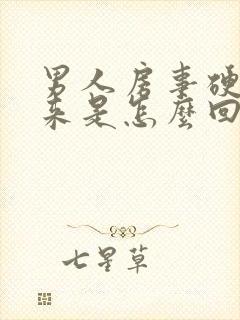 男人房事硬
来是怎麽回
七星草